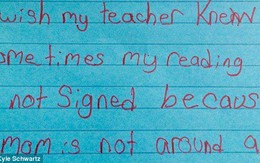 wish my teacher Knew
ome times my reading
not Signed becaus
mom is not around a
Kyle Schwartz